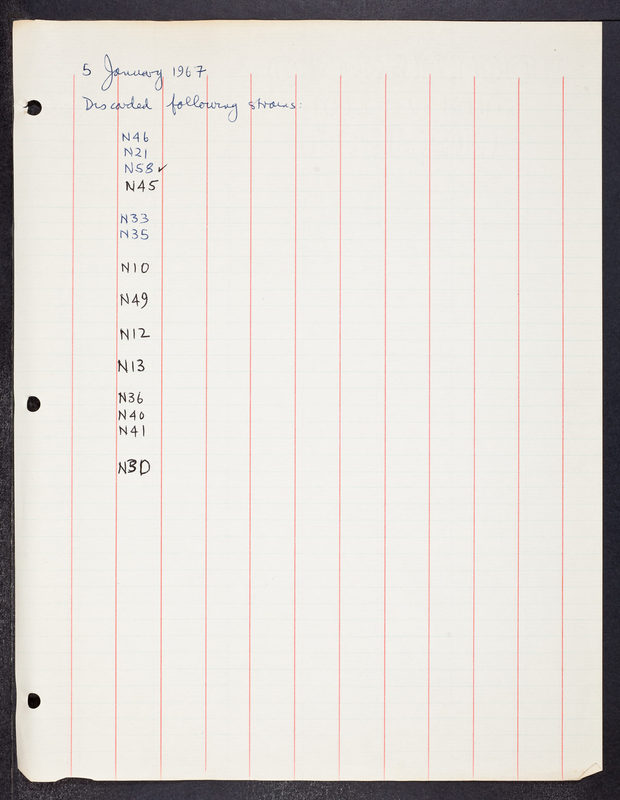 5 January 1967
Discarded following strains:
N46
N21
N58 ✓
N45
N33
N35
N10
N49
N12
N13
N36
N40
N41
N3D